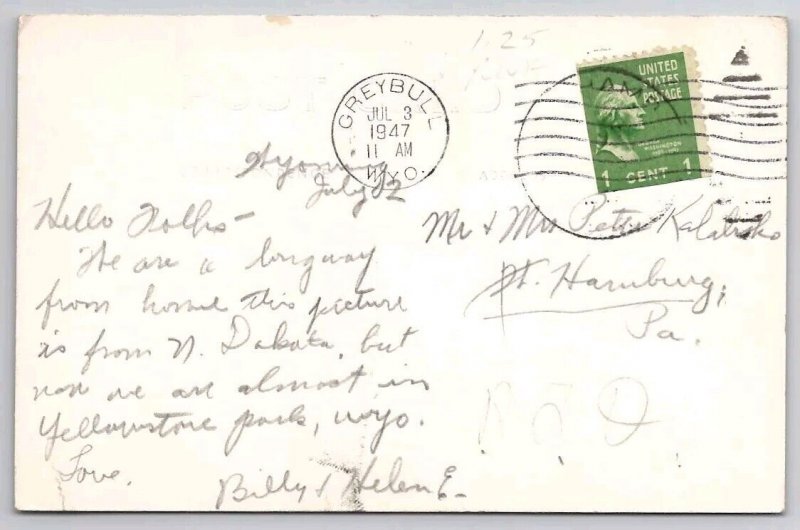 1.25
GREYBULL
JUL 3
1947
11 AM
WYO.
UNITED
STATES
POSTAGE
GEORGE
WASHINGTON
1 CENT 1
Wyoming
July 2
Hello Folks -
We are a longway
from home this picture
is from N. Dakota, but
now we are almost in
Yellowstone park, wyo.
Love.
Billy & Helen E.
Mr & Mrs Peter
Pt. Hamburg,
Pa.